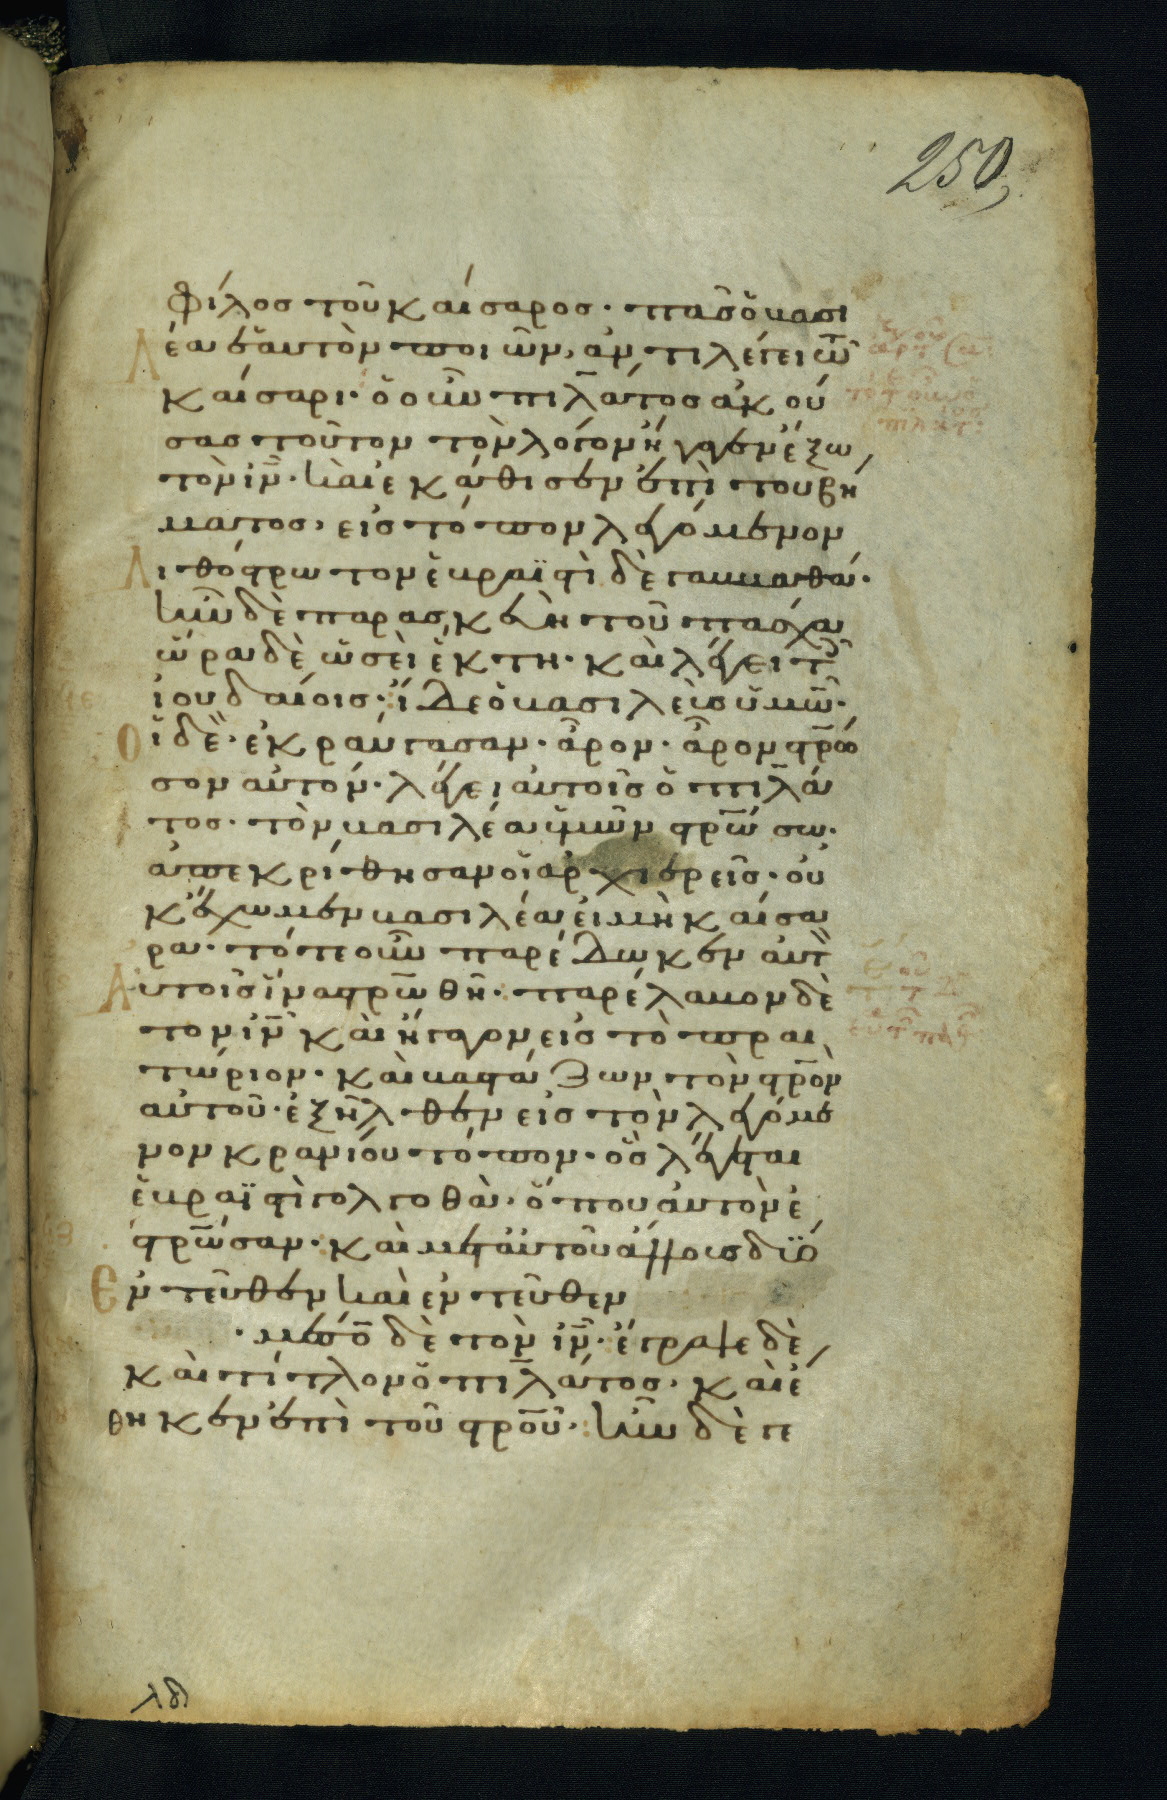 250
φίλος τοῦ καίσαρος· πᾶσ ὁ βασι
λέα ἑαυτὸν ποιῶν, ἀντιλέγει τῶ
καίσαρι· ὁ οὖν πιλᾶτος ἀκού
σας τοῦτον τὸν λόγον ἤγαγεν ἔξω
τὸν ἰν̅· καὶ ἐκάθισεν ἐπὶ τοῦ βή
ματος, εἰς τόπον λεγόμενον
λιθόστρωτον ἑβραϊστὶ δὲ γαββαθά·
ἦν δὲ παρασκευὴ τοῦ πάσχα
ὥρα δὲ ὡσεὶ ἕκτη· καὶ λέγει τοῖς
ἰουδαίοις· ἴδε ὁ βασιλεὺς ὑμῶν·
Οἱ δὲ ἐκραύγασαν· ἆρον· ἆρον στ̅ρω
σον αὐτόν· λέγει αὐτοῖς ὁ πιλά
τος· τὸν βασιλέα ὑμῶν στ̅ρώσω·
ἀπεκρίθησαν οἱ ἀρχιερεῖς· οὐ
κ ἔχωμεν βασιλέα εἰ μὴ καίσα
ρα· τότε οὖν παρέδωκεν αὐτὸν
Αὐτοῖς ἵνα στ̅ρωθῆ· παρέλαβον δὲ
τὸν ἰν̅ καὶ ἤγαγον εἰς τὸ πραι
τώριον· καὶ βαστάζων τὸν στ̅ρὸν
αὐτοῦ· ἐξῆλθεν εἰς τὸν λεγόμε
νον κρανίου τόπον· ὃς λέγεται
ἑβραϊστὶ γολγοθὰ· ὅπου αὐτὸν ἐ
στ̅ρωσαν· καὶ μετ αὐτοῦ ἄλλους δύο
Ἐντεῦθεν καὶ ἐντεῦθεν
· μέσον δὲ τὸν ἰν̅· ἔγραψε δὲ
καὶ τίτλον ὁ πιλάτος· καὶ ἔ
θηκεν ἐπὶ τοῦ στ̅ροῦ· ἦν δὲ γε